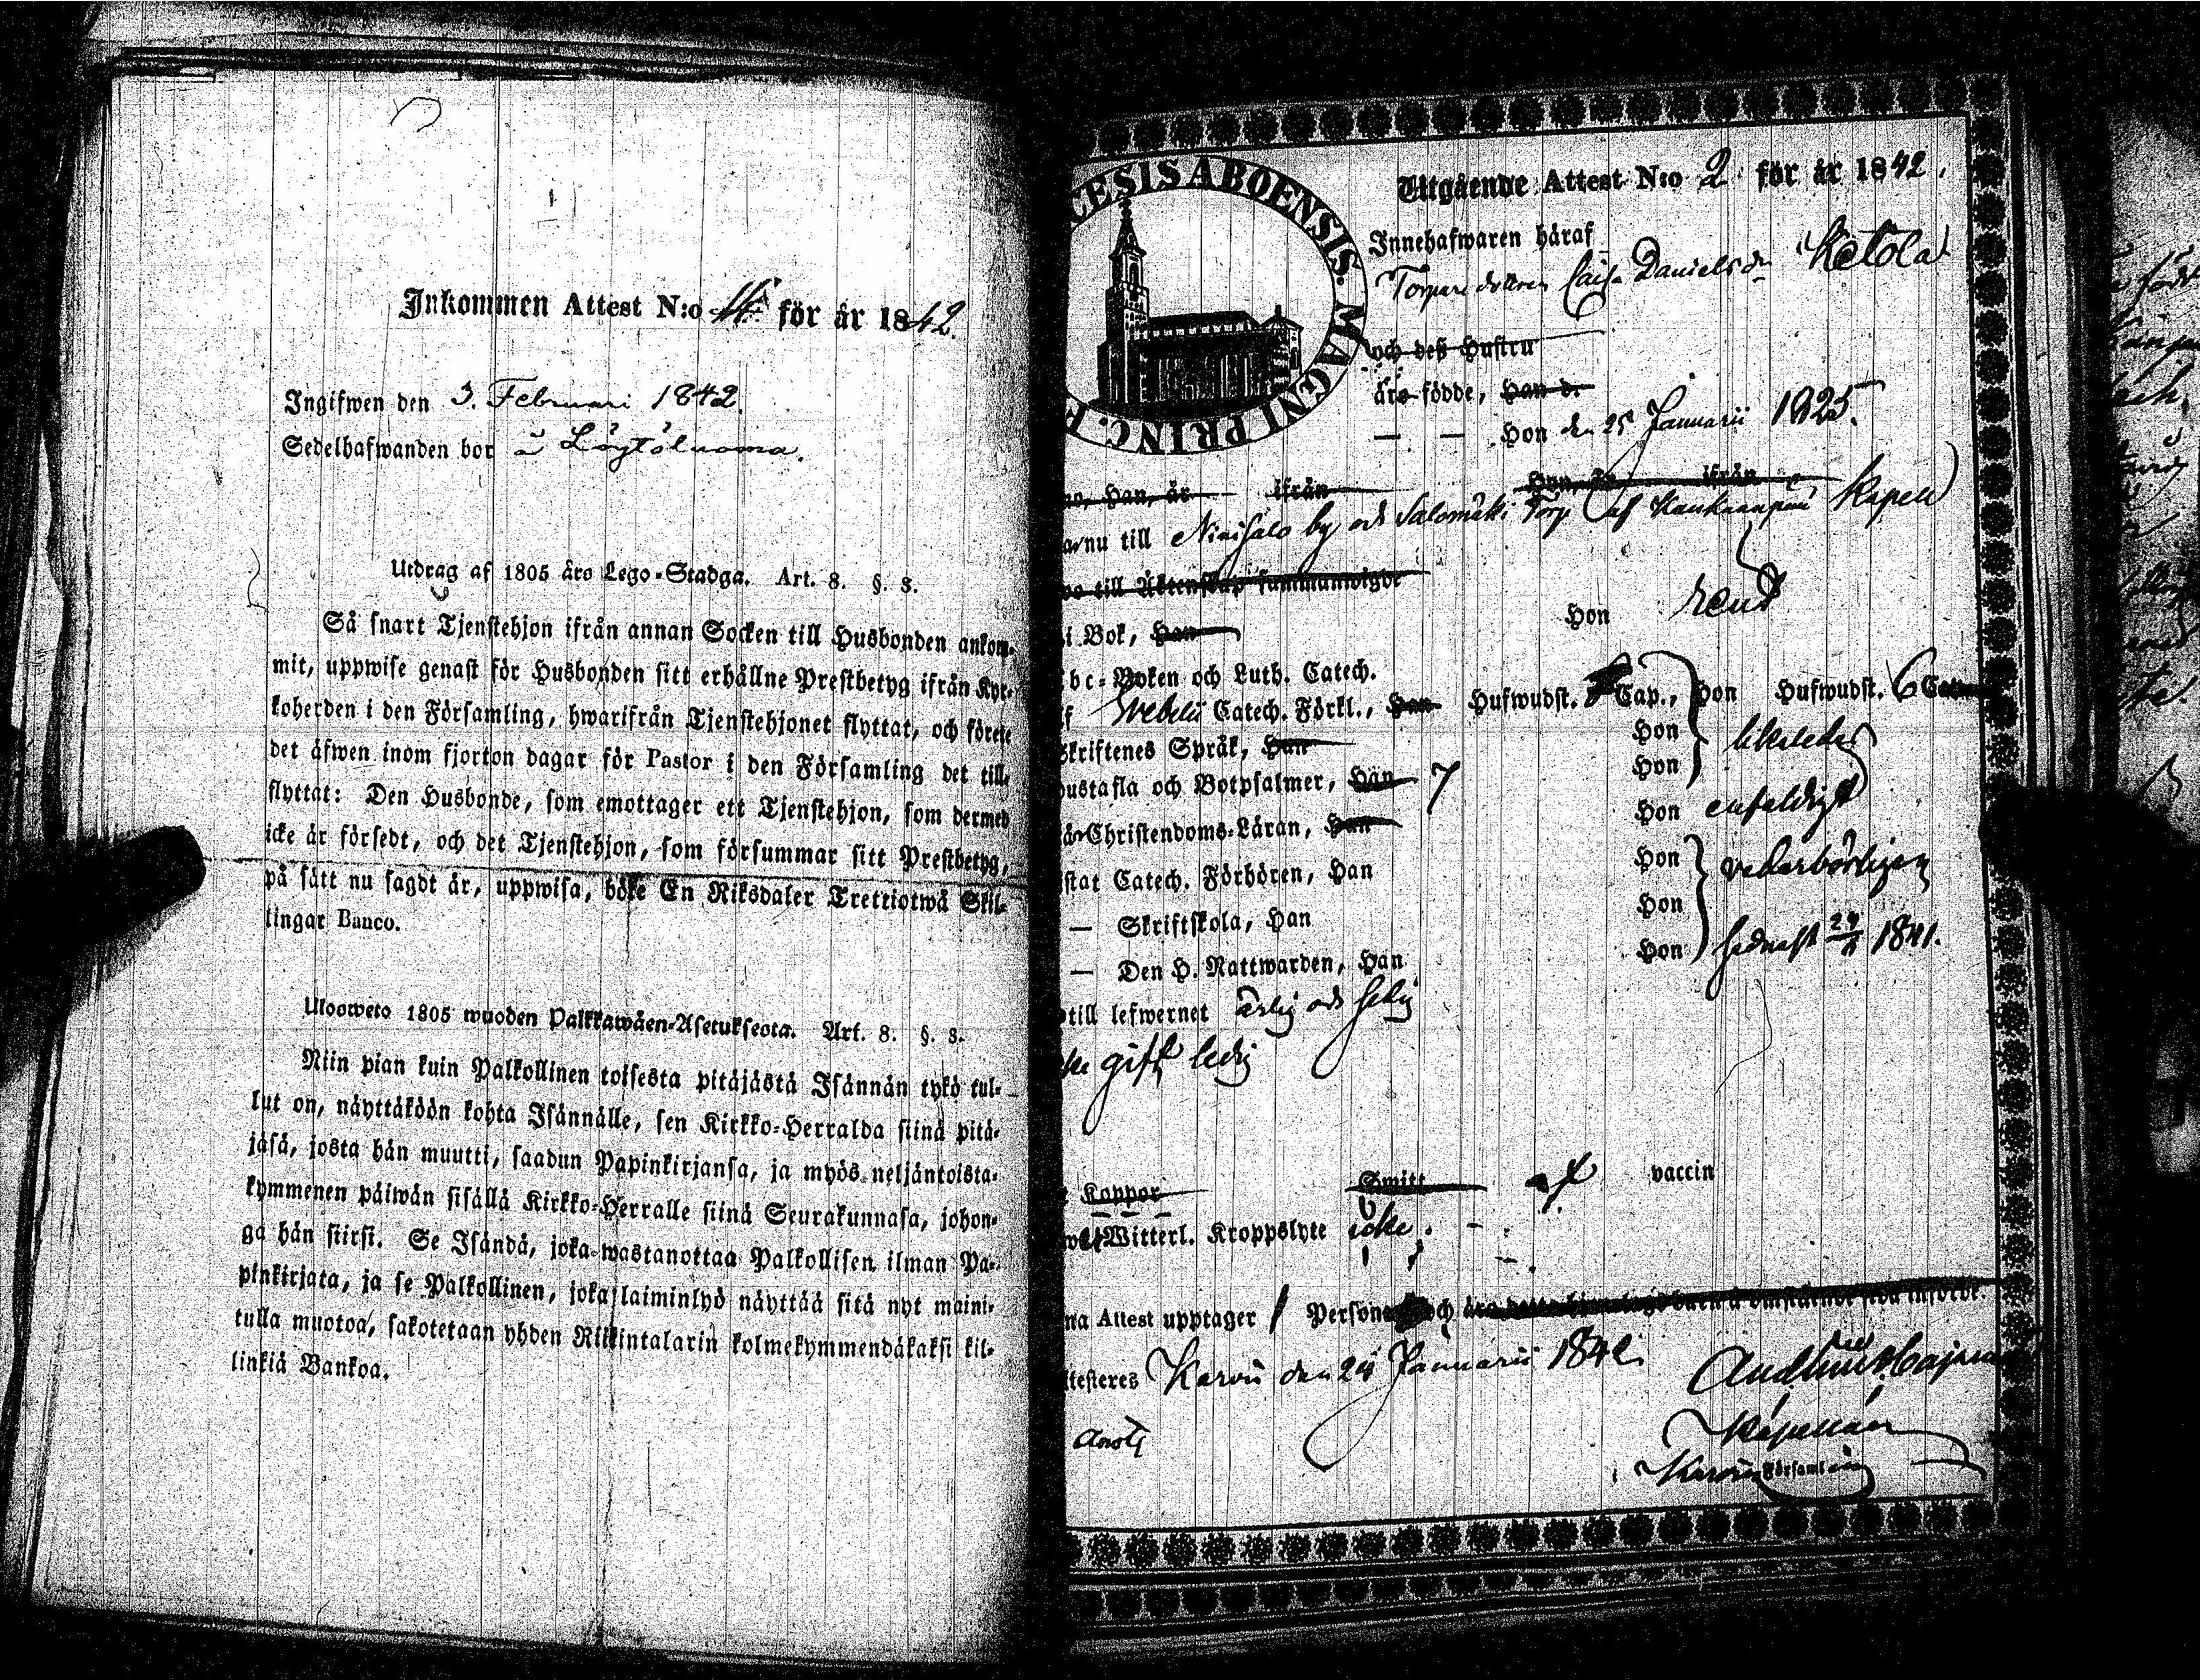 Inkommen Attest N:o för år 1842.
Ingifwen den 3. Februari 1842.
Sedelhafwanden bor å
Utdrag af 1805 års Lego-Stadga. Art. 8. §. 3.
Så snart Tjenstehjon ifrån annan Socken till Husbonden ankom-
mit, uppwise genast för Husbonden sitt erhållne Prestbetyg ifrån Kyr-
koherden i den Församling, hwarifrån Tjenstehjonet flyttat, och förete
det äfwen inom fjorton dagar för Pastor i den Församling det till-
flyttat: Den Husbonde, som emottager ett Tjenstehjon, som dermed
icke är försedt, och det Tjenstehjon, som försummar sitt Prestbetyg,
på sätt nu sagdt är, uppwisa, böte En Riksdaler Trettiotwå Skil-
lingar Banco.
Ulosweto 1805 wuoden Palkkawäen-Asetuksesta. Art. 8. §. 3.
Niin pian kuin Palkollinen toisesta pitäjästä Isännän tykö tul-
lut on, näyttäköön kohta Isännälle, sen Kirkko-Herralda siinä pitä-
jäsä, josta hän muutti, saadun Papinkirjansa, ja myös neljäntoista-
kymmenen päiwän sisällä Kirkko-Herralle siinä Seurakunnasa, johon-
ga hän siirsi. Se Isändä, joka wastanottaa Palkollisen ilman Pa-
pinkirjata, ja se Palkollinen, joka laiminlyö näyttää sitä nyt maini-
tulla muotoa, sakotetaan yhden Riikintalarin kolmekymmendäkaksi kil-
linkiä Bankoa.
CESIS ABOENSIS. MAGNI PRINC. F
Utgående Attest N:o 2 för år 1842.
Innehafwaren häraf
Torpare dottren Caisa Danielsdr Ketola
och deß Hustru
äro födde, Han d.
— — Hon den 25 Januarii 1825.
no, Han, är ifrån Hon, är ifrån
nu till Niinisalo by och Salomäki Torp af Kankaanpää Kapell
till Äktenskap sammanwigde
i Bok, Han Hon rent
bc-Boken och Luth. Catech.
Svebelii Catech. Förkl., Han Hufwudst. Cap., Hon Hufwudst. 6
Skriftenes Språk, Han Hon likaledes
Hustafla och Botpsalmer, Han Hon
Christendoms-Läran, Han Hon enfaldigt
stat Catech. Förhören, Han Hon vederbörligen
— Skriftskola, Han Hon
— Den H. Nattwarden, Han Hon sednast 1841.
till lefwernet ärlig och
gift ledig
Koppor Smitt vaccin
Witterl. Kroppslyte icke.
na Attest upptager 1 Person och
ttesteres Karvia den 24 Januarii 1842
Kapellan
Karvia Församling